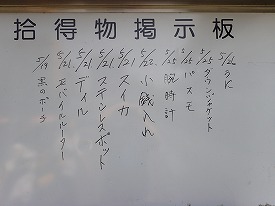 拾得物掲示板
5/26 うK
5/25 ダウンジャケット
5/25 パスモ
5/25 腕時計
5/23. 小銭入れ
5/21 スイカ
5/21 ステンレスポット
5/21. ディル
5/21. モバイルルーター
5/19 黒のポーチ